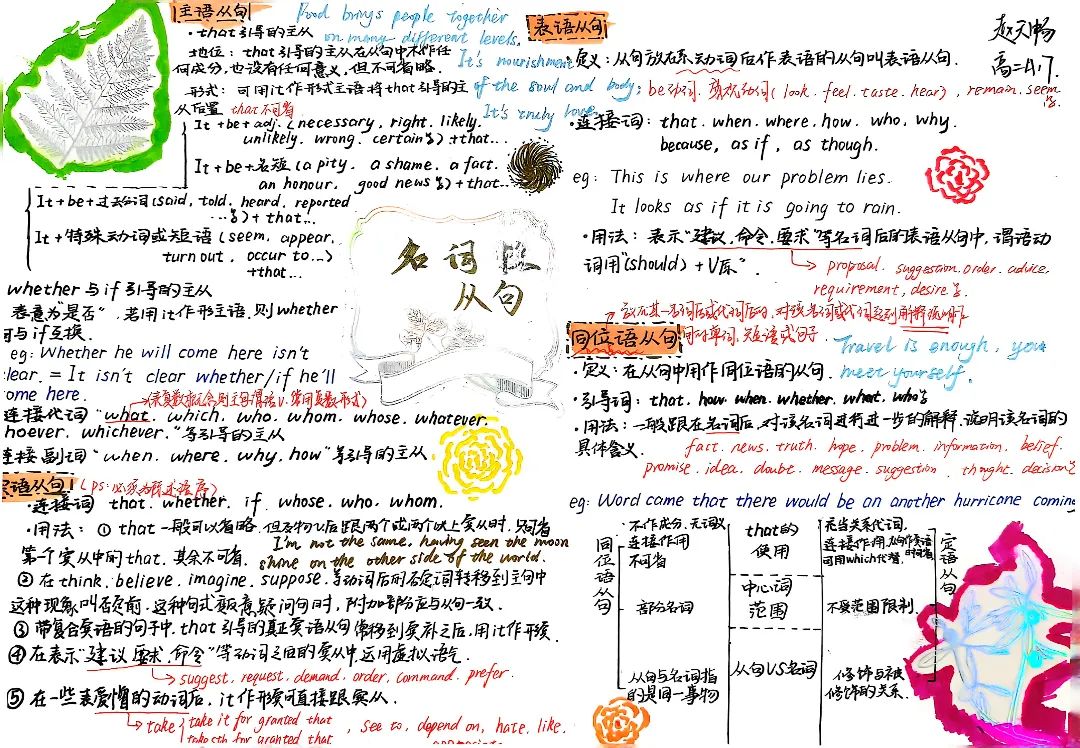 主语从句
Food brings people together
on many different levels.
It's nourishment
of the soul and body;
It's truly love.
·that引导的主从
地位：that引导的主从在从句中不作任
何成分，也没有任何意义，但不可省略.
形式：可用it作形式主语将that引导的主
从后置 that不可省
It+be+adj.(necessary, right. likely.
unlikely. wrong. certain等)+that...
It+be+名短(a pity. a shame. a fact.
an honour. good news等)+that...
It+be+过去分词(said, told. heard. reported
...等)+that...
It+特殊动词或短语(seem. appear.
turn out. occur to...)
+that...
whether与if引导的主从
表意为"是否"，若用it作形主语，则whether
可与if互换.
eg: Whether he will come here isn't
lear. = It isn't clear whether/if he'll
ome here.
连接代词"what. which. who. whom. whose. whatever.
hoever. whichever."等引导的主从
连接副词"when. where. why, how"等引导的主从
名词性
从句
宾语从句
(ps:必须为陈述语序)
·连接词 that. whether. if. whose. who. whom.
·用法：① that一般可以省略，但及物V后跟两个或两个以上宾从时，只可省
第一个宾从中的that，其余不可省.
I'm not the same, having seen the moon
shine on the other side of the world.
② 在think. believe. imagine. suppose. 等动词后用否定词转移到主句中
这种现象叫否定前.这种句式反意疑问句时，附加部分应与从句一致.
③ 带复合宾语的句子中，that引导的真正宾语从句常移到宾补之后，用it作形宾.
④ 在表示"建议 要求.命令"等动词之后的宾从中，运用虚拟语气.
suggest, request, demand, order, command. prefer.
⑤ 在一些表爱憎的动词后，it作形宾可直接跟宾从.
take it for granted that
take take sth for granted that
, see to, depend on, hate, like.
表语从句
赵天畅
高二4.17.
·定义：从句放在系动词后作表语的从句叫表语从句.
be动词. 感观动词(look. feel. taste. hear), remain. seem等.
·连接词：that. when. where. how. who. why.
because, as if, as though.
eg: This is where our problem lies.
It looks as if it is going to rain.
·用法：表示"建议.命令.要求"等名词后的表语从句中，谓语动
词用"(should)+V原".
proposal. suggestion. order. advice.
requirement, desire等.
同位语从句
Travel is enough, you
meet yourself.
·定义：在从句中用作同位语的从句.
·引导词：that. how. when. whether. what. who等
·用法：一般跟在名词后，对该名词进行进一步的解释，说明该名词的
具体含义.
fact. news. truth. hope. problem. information. belief.
promise. idea. doubt. message. suggestion. thought. decision等
eg: Word came that there would be an another hurricane coming
同位语从句
·不作成分，无词义
连接作用
不可省
that的
使用
充当关系代词.
可用which代替.
定语从句
部分名词
中心词
范围
不受范围限制.
从句与名词指
的是同一事物
从句VS名词
修饰与被
修饰的关系.